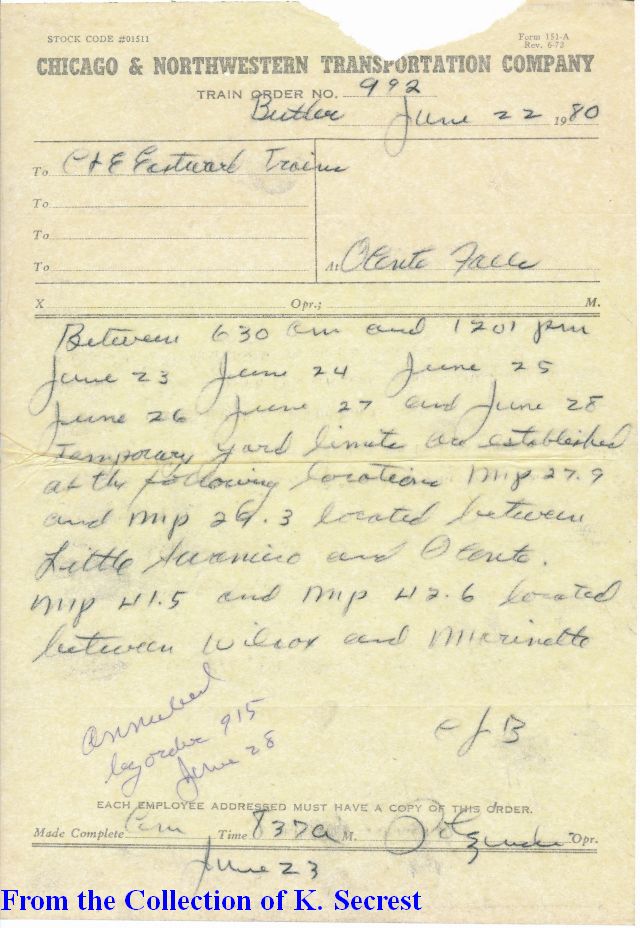 STOCK CODE #01511
Form 151-A
Rev. 6-72
CHICAGO & NORTHWESTERN TRANSPORTATION COMPANY
TRAIN ORDER NO. 992
Butler June 22 1980
To C&E Eastward Trains
To
To
To
At Oconto Falls
X Opr.; M.
Between 630 am and 1201 pm
June 23 June 24 June 25
June 26 June 27 and June 28
Temporary yard limits are established
at the following locations Mp 27.9
and Mp 29.3 located between
Little Suamico and Oconto.
Mp 41.5 and Mp 42.6 located
between Wilcox and Marinette
CJB
Annulled
by order 915
June 28
EACH EMPLOYEE ADDRESSED MUST HAVE A COPY OF THIS ORDER.
Made Complete Com Time 837a M. Opr.
June 23
From the Collection of K. Secrest